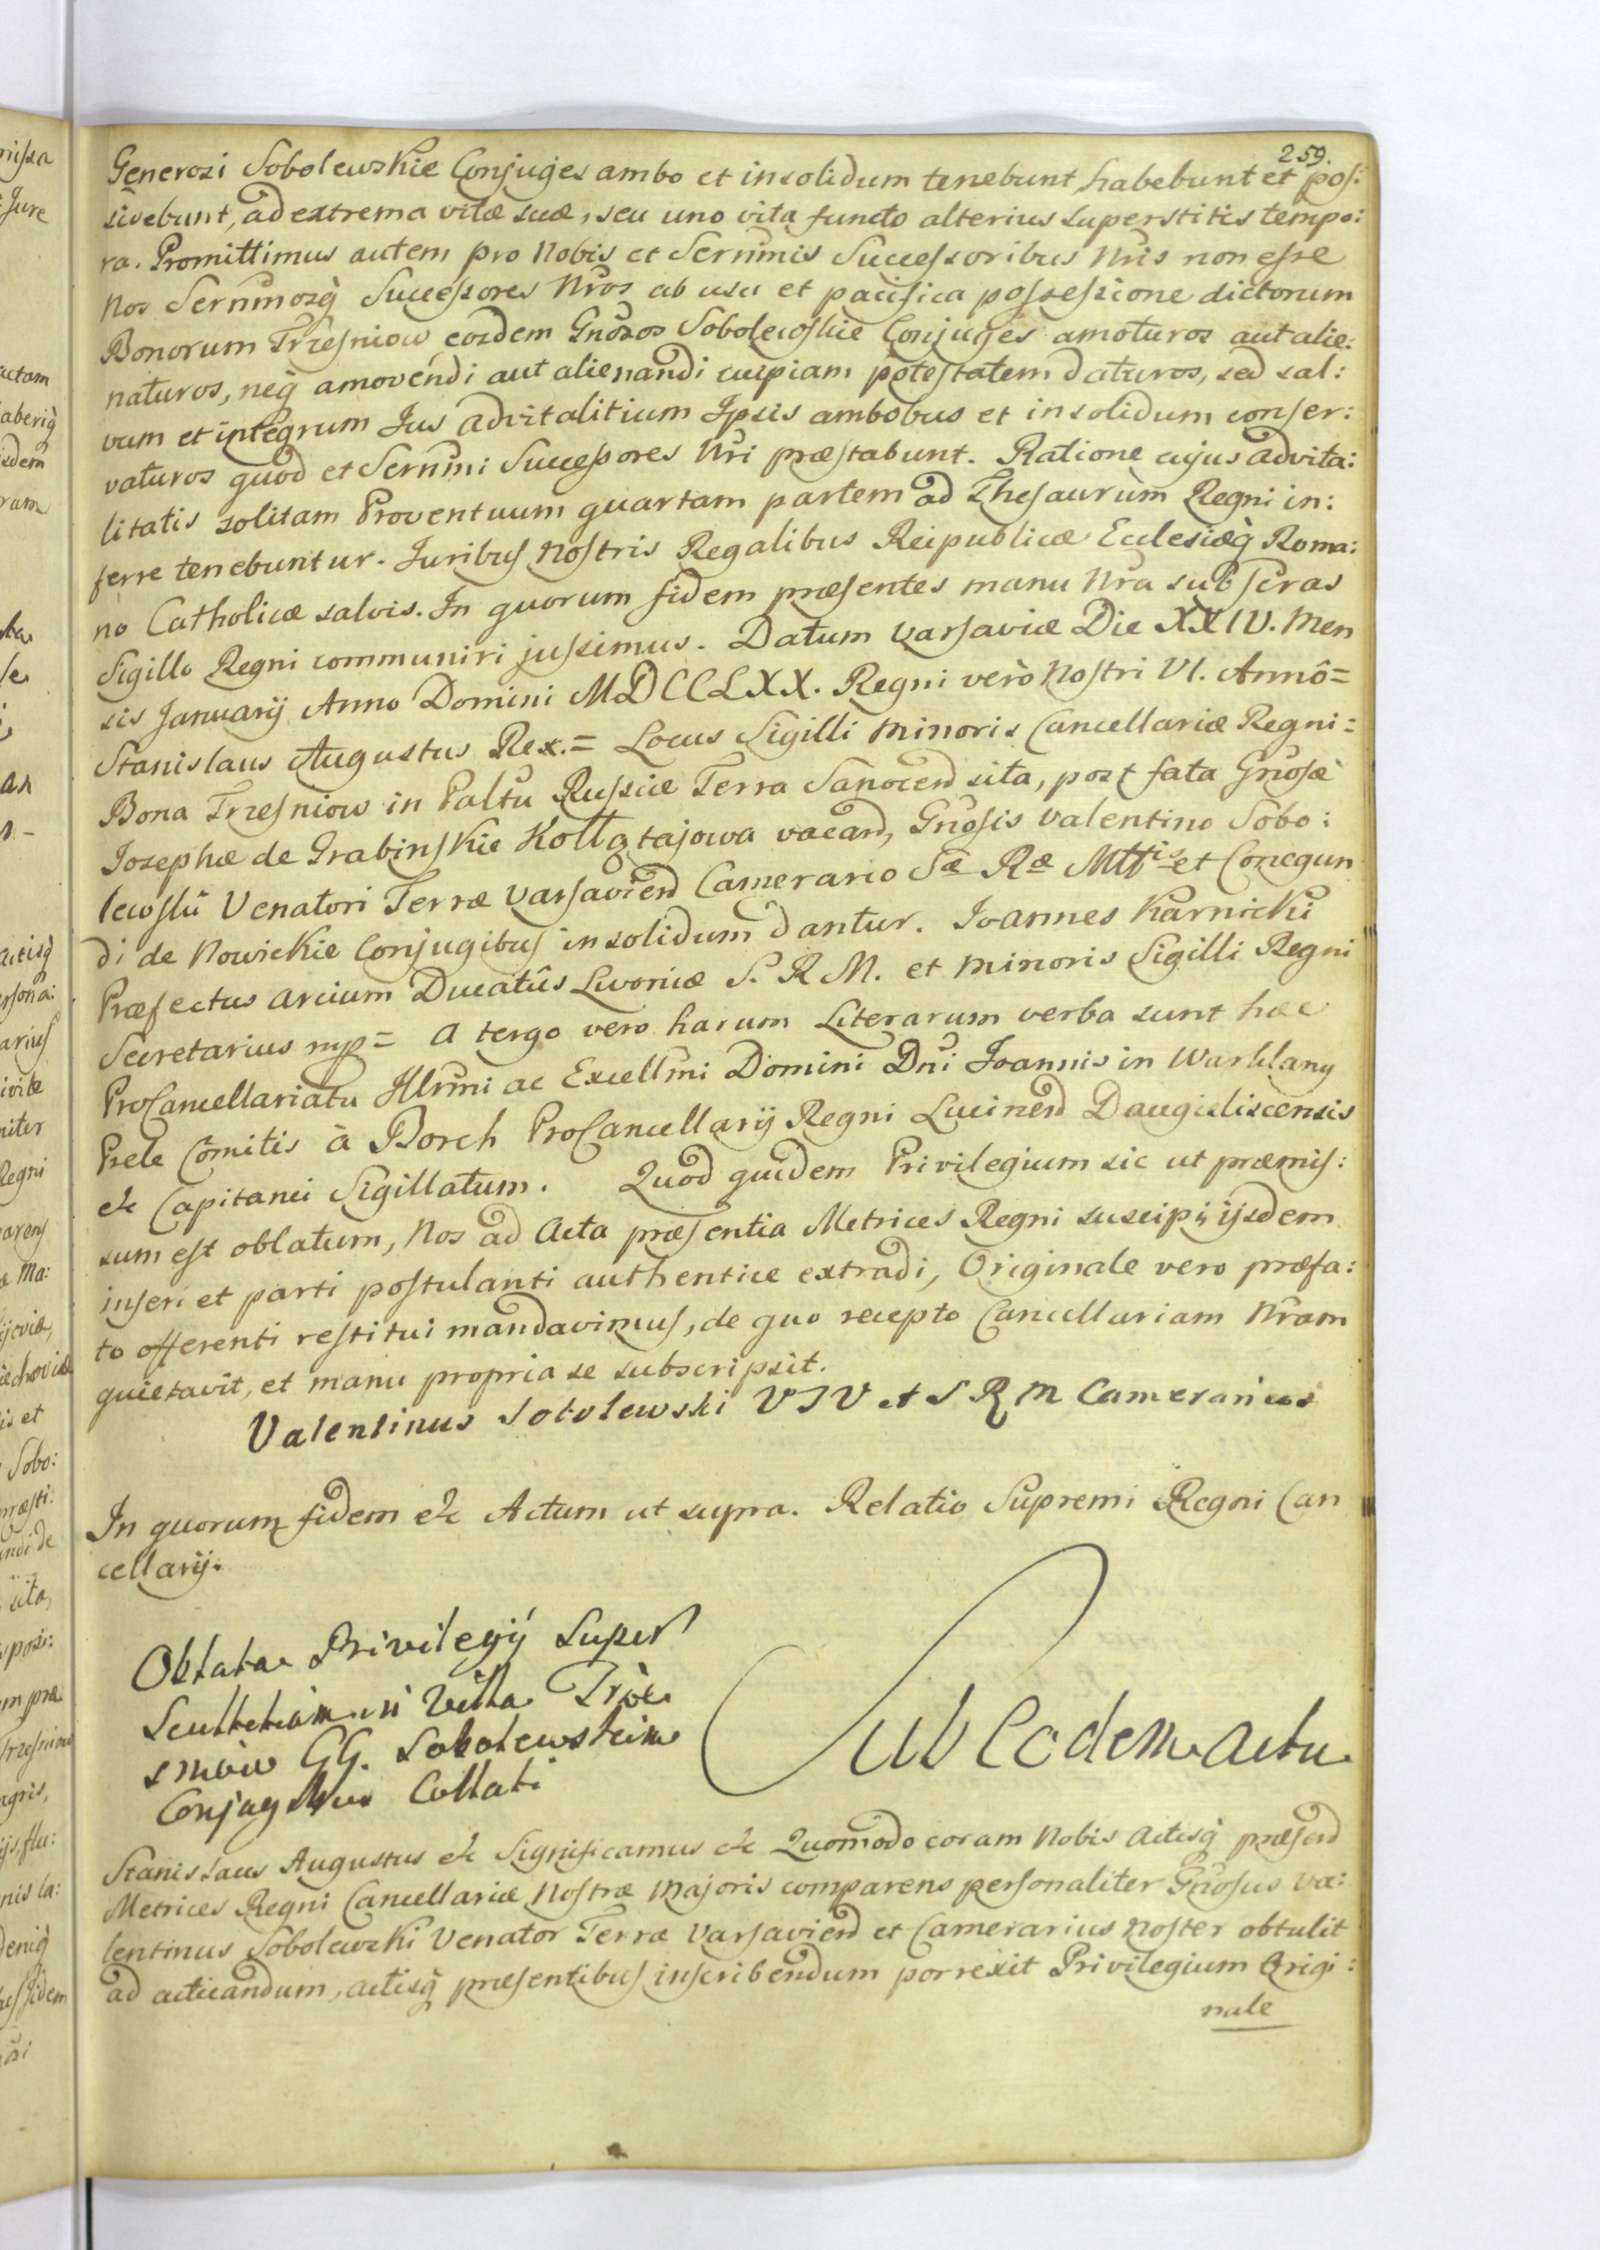 259.
Generosi Sobolewskie Conjuges ambo et insolidum tenebunt habebunt et pos:
sivebunt, ad extrema vitæ suæ, seu uno vita functo alterius superstitis tempo:
ra. Promittimus autem pro Nobis et Sernmis Successoribus Nris non esse
Nos Sernmosq̀ Successores Nros ab usu et pacifica possessione dictorum
Bonorum Trzesniow eosdem Gnosos Sobolewskie Conjuges amoturos aut alie:
naturos, neq̀ amovendi aut alienandi cuipiam potestatem daturos, sed sal:
vum et integrum Jus advitalitium Ipsis ambobus et insolidum conser:
vaturos quod et Sernmi Successores Nri præstabunt. Ratione cujus advita:
litatis solitam Proventuum quartam partem ad Thesaurum Regni in:
ferre tenebuntur. Juribus Nostris Regalibus Reipublicæ Ecclesiæq̀ Roma:
no Catholicæ salvis. In quorum fidem præsentes manu Nra subscras
Sigillo Regni communiri jussimus. Datum Varsaviæ Die XXIV. Men
sis Januarij Anno Domini MDCCLXX. Regni verò Nostri VI. Annô=
Stanislaus Augustus Rex.= Locus Sigilli minoris Cancellariæ Regni=
Bona Trzesniow in Paltu Russiæ Terra Sanocen sita, post fata Gnosæ
Josephæ de Grabinskie Kołłątajowa vacan, Gnosis Valentino Sobo:
lewski Venatori Terræ Varsavien Camerario Sæ Ræ Mttis et Conegun
di de Nowickie Conjugibus insolidum dantur. Joannes Karnicki
Præfectus arcium Ducatûs Livoniæ S. R. M. et minoris Sigilli Regni
Secretarius mp= A tergo vero harum Literarum verba sunt hæc
ProCancellariatu Illrmi ac Excellmi Domini Dni Joannis in Warklany
Prele Comitis à Borch ProCancellarij Regni Lucinen Daugieliscensis
&c Capitanei Sigillatum. Quod quidem Privilegium sic ut præmis:
sum est oblatum, Nos ad Acta præsentia Metrices Regni suscipi, ijsdem
inseri et parti postulanti authentice extradi, Originale vero præfa:
to offerenti restitui mandavimus, de quo recepto Cancellariam Nram
quietavit, et manu propria se subscripsit.
Valentinus Sobolewski VTV et S R M Camerarius
In quorum fidem &c Actum ut supra. Relatio Supremi Regni Can
cellarij.
Oblata Privilegij super
Scultetiam in Villa Trze
sniow GG. Sobolewskim
Conjugibus Collati
Sub Eodem actu
Stanislaus Augustus &c Significamus &c Quomodo coram Nobis Actisq̀ præsen
Metrices Regni Cancellariæ Nostræ Majoris comparens personaliter Gnosus Va:
lentinus Sobolewski Venator Terræ Varsavien et Camerarius Noster obtulit
ad acticandum, actisq̀ præsentibus inscribendum porrexit Privilegium Origi:
nale